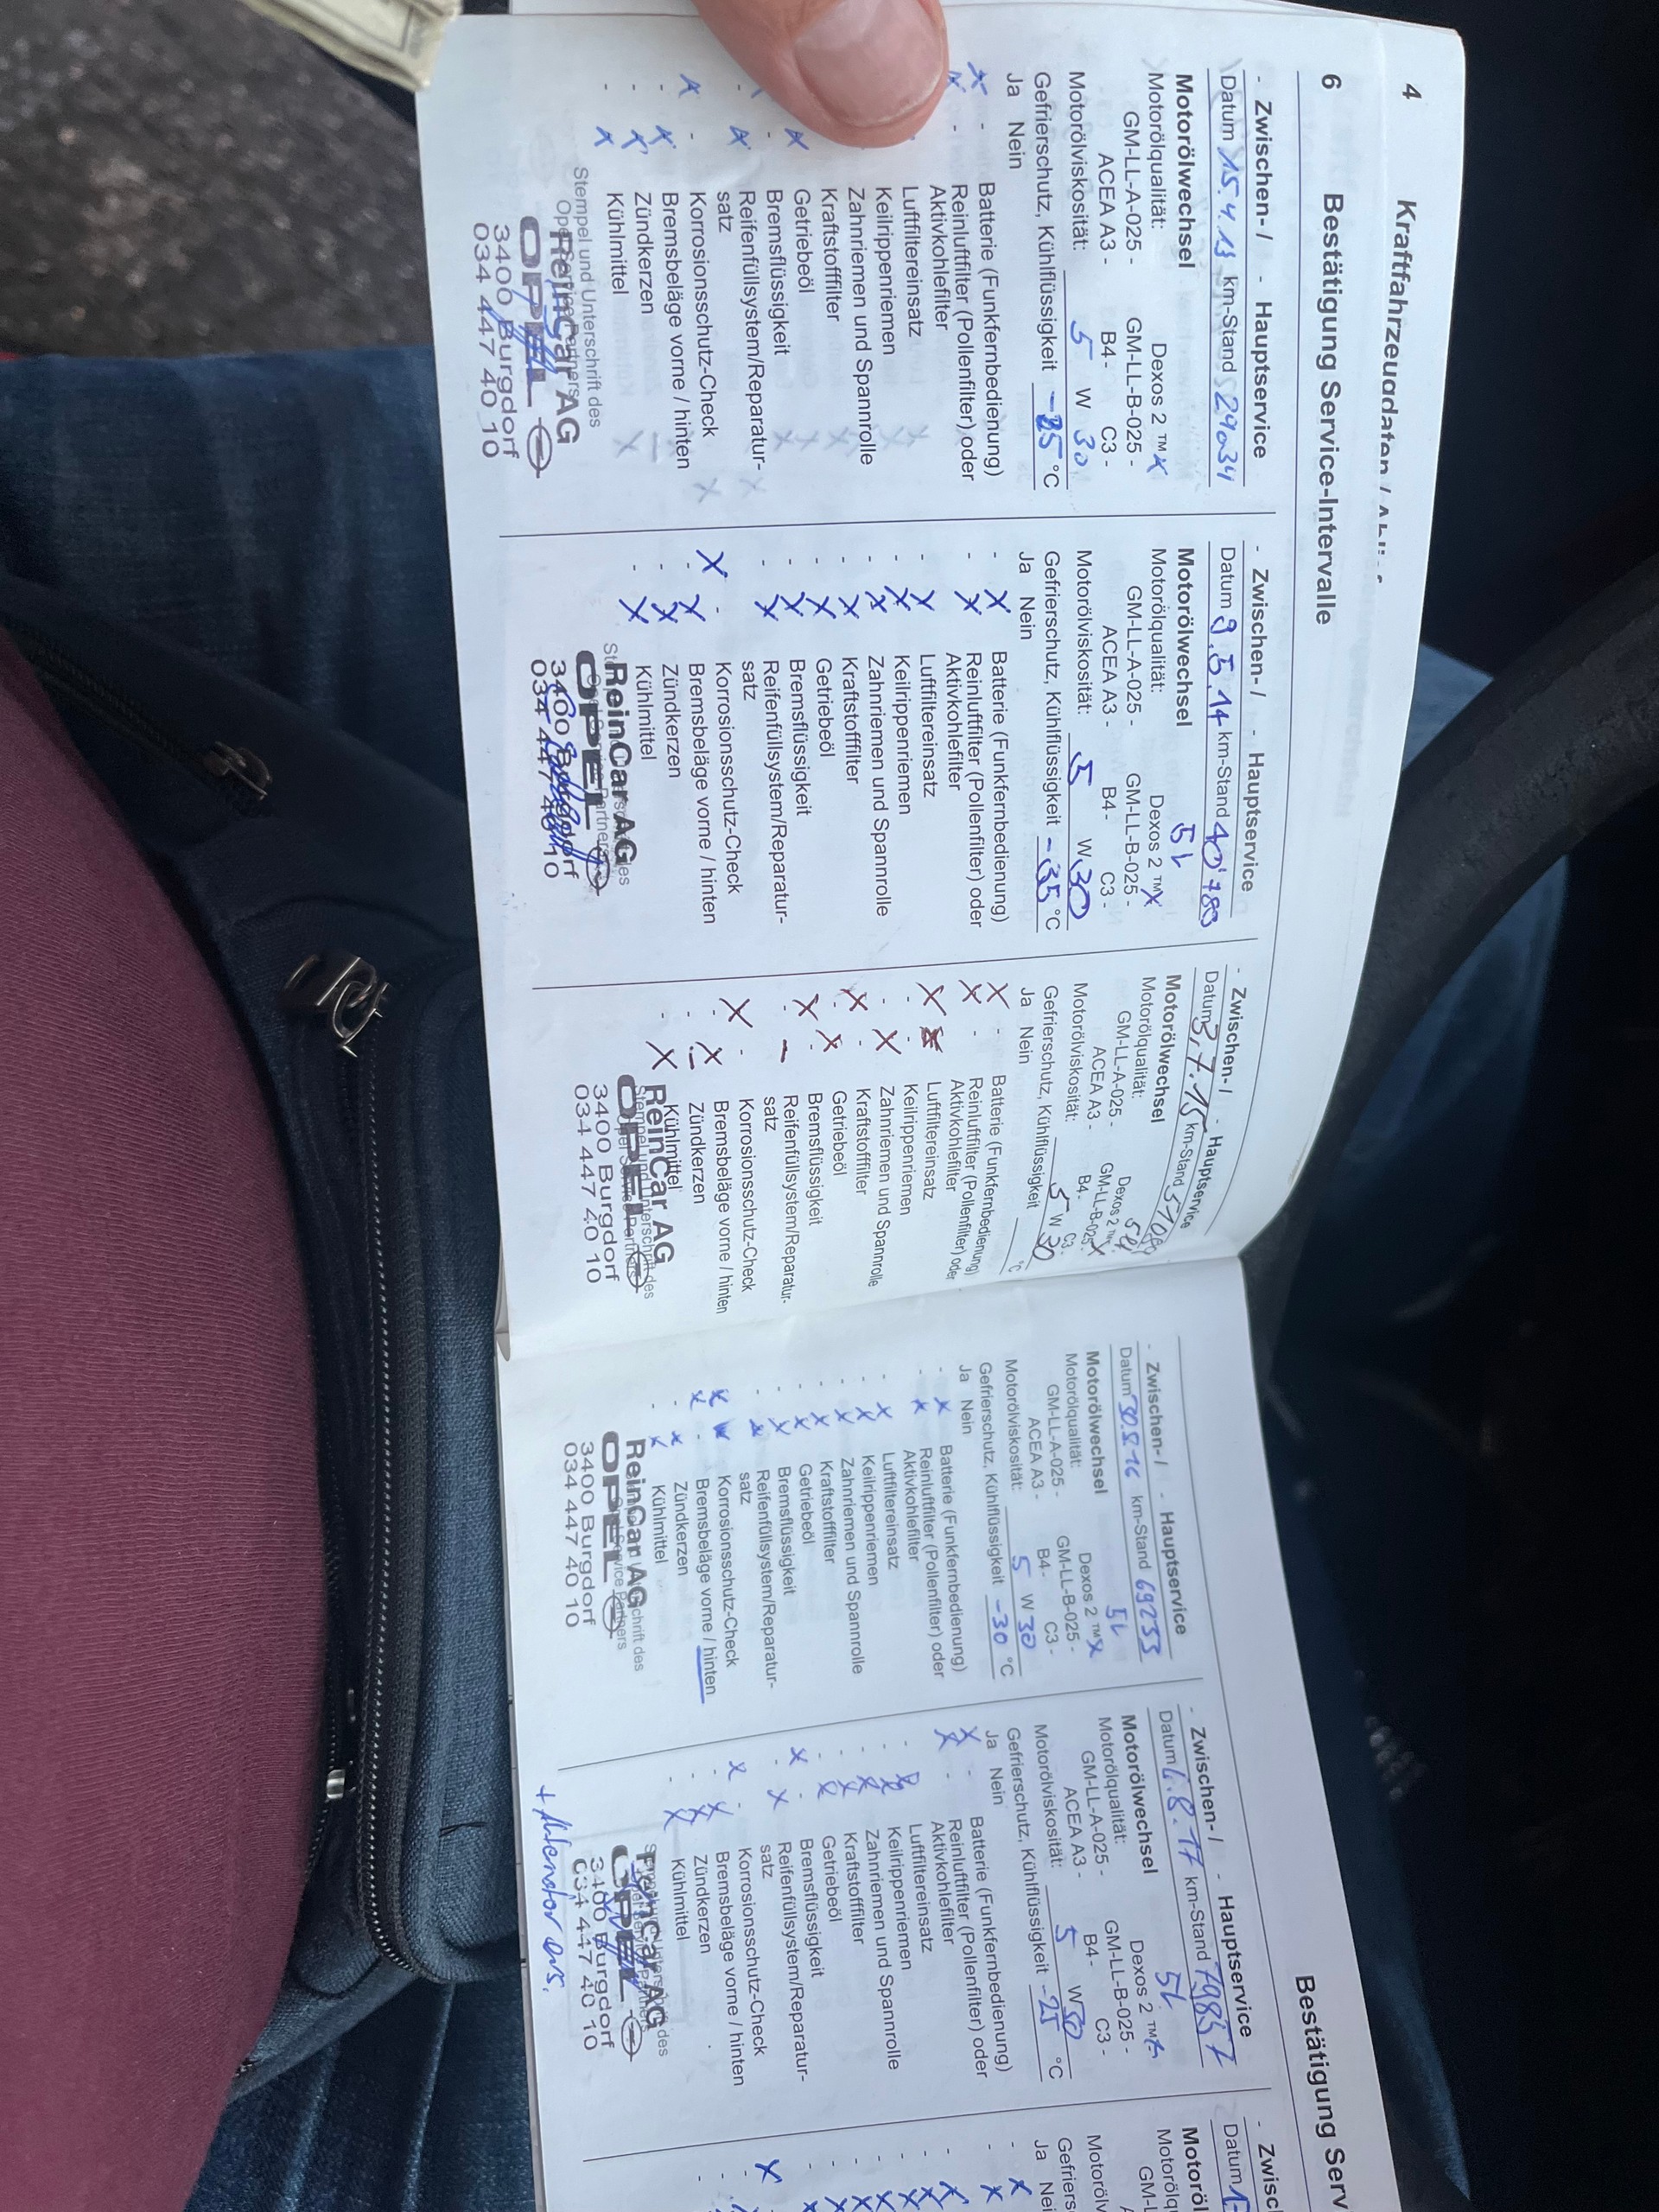 4
Kraftfahrzeugdaten
6
Bestätigung Service-Intervalle
- Zwischen- / - Hauptservice
Datum 15.4.13 km-Stand 29034
Motorölwechsel
Motorölqualität: Dexos 2 ™ X
GM-LL-A-025 - GM-LL-B-025 -
ACEA A3 - B4 - C3 -
Motorölviskosität: 5 W 30
Gefrierschutz, Kühlflüssigkeit °C
Ja Nein
X - Batterie (Funkfernbedienung)
X - Reinluftfilter (Pollenfilter) oder
Aktivkohlefilter
Luftfiltereinsatz
Keilrippenriemen
Zahnriemen und Spannrolle
Kraftstofffilter
X Getriebeöl
- Bremsflüssigkeit
X Reifenfüllsystem/Reparatur-
satz
X - Korrosionsschutz-Check
- X Bremsbeläge vorne / hinten
- X Zündkerzen
- X Kühlmittel
Stempel und Unterschrift des
Opel Service Partners
ReinCar AG
OPEL
3400 Burgdorf
034 447 40 10
- Zwischen- / - Hauptservice
Datum 9.5.14 km-Stand 40'783
Motorölwechsel 5L
Motorölqualität: Dexos 2 ™ X
GM-LL-A-025 - GM-LL-B-025 -
ACEA A3 - B4 - C3 -
Motorölviskosität: 5 W 30
Gefrierschutz, Kühlflüssigkeit -35 °C
Ja Nein
- X Batterie (Funkfernbedienung)
- X Reinluftfilter (Pollenfilter) oder
Aktivkohlefilter
- X Luftfiltereinsatz
- X Keilrippenriemen
- X Zahnriemen und Spannrolle
- X Kraftstofffilter
- X Getriebeöl
- X Bremsflüssigkeit
- X Reifenfüllsystem/Reparatur-
satz
X - Korrosionsschutz-Check
- X Bremsbeläge vorne / hinten
- X Zündkerzen
- X Kühlmittel
ReinCar AG
OPEL
3400 Burgdorf
034 447 40 10
- Zwischen- / - Hauptservice
Datum 3.7.15 km-Stand
Motorölwechsel
Motorölqualität: Dexos 2 ™ X
GM-LL-A-025 - GM-LL-B-025 -
ACEA A3 - B4 - C3 -
Motorölviskosität: 5 W 30
Gefrierschutz, Kühlflüssigkeit °C
Ja Nein
X - Batterie (Funkfernbedienung)
X - Reinluftfilter (Pollenfilter) oder
Aktivkohlefilter
X Luftfiltereinsatz
- Keilrippenriemen
- X Zahnriemen und Spannrolle
X - Kraftstofffilter
- X Getriebeöl
X - Bremsflüssigkeit
- – Reifenfüllsystem/Reparatur-
satz
X - Korrosionsschutz-Check
- X Bremsbeläge vorne / hinten
- – Zündkerzen
- X Kühlmittel
Stempel und Unterschrift des
Opel Service Partners
ReinCar AG
OPEL
3400 Burgdorf
034 447 40 10
- Zwischen- / - Hauptservice
Datum 30.8.16 km-Stand 69233
Motorölwechsel 5L
Motorölqualität: Dexos 2 ™ X
GM-LL-A-025 - GM-LL-B-025 -
ACEA A3 - B4 - C3 -
Motorölviskosität: 5 W 30
Gefrierschutz, Kühlflüssigkeit -30 °C
Ja Nein
- X Batterie (Funkfernbedienung)
- X Reinluftfilter (Pollenfilter) oder
Aktivkohlefilter
- X Luftfiltereinsatz
- X Keilrippenriemen
- X Zahnriemen und Spannrolle
- X Kraftstofffilter
- X Getriebeöl
- X Bremsflüssigkeit
- X Reifenfüllsystem/Reparatur-
satz
X Korrosionsschutz-Check
X - Bremsbeläge vorne / hinten
- X Zündkerzen
- X Kühlmittel
ReinCar AG
OPEL
3400 Burgdorf
034 447 40 10
Bestätigung Serv
- Zwischen- / - Hauptservice
Datum .8.17 km-Stand 79857
Motorölwechsel 5L
Motorölqualität: Dexos 2 ™ X
GM-LL-A-025 - GM-LL-B-025 -
ACEA A3 - B4 - C3 -
Motorölviskosität: 5 W 30
Gefrierschutz, Kühlflüssigkeit -25 °C
Ja Nein
X - Batterie (Funkfernbedienung)
X - Reinluftfilter (Pollenfilter) oder
Aktivkohlefilter
- X Luftfiltereinsatz
- X Keilrippenriemen
- X Zahnriemen und Spannrolle
- X Kraftstofffilter
- X Getriebeöl
X - Bremsflüssigkeit
- X Reifenfüllsystem/Reparatur-
satz
X - Korrosionsschutz-Check
- X Bremsbeläge vorne / hinten
- X Zündkerzen
- X Kühlmittel
ReinCar AG
OPEL
3400 Burgdorf
034 447 40 10
- Zwisc
Datum
Motoröl
Motorölq
GM-L
Motorölv
Gefriers
Ja Nei